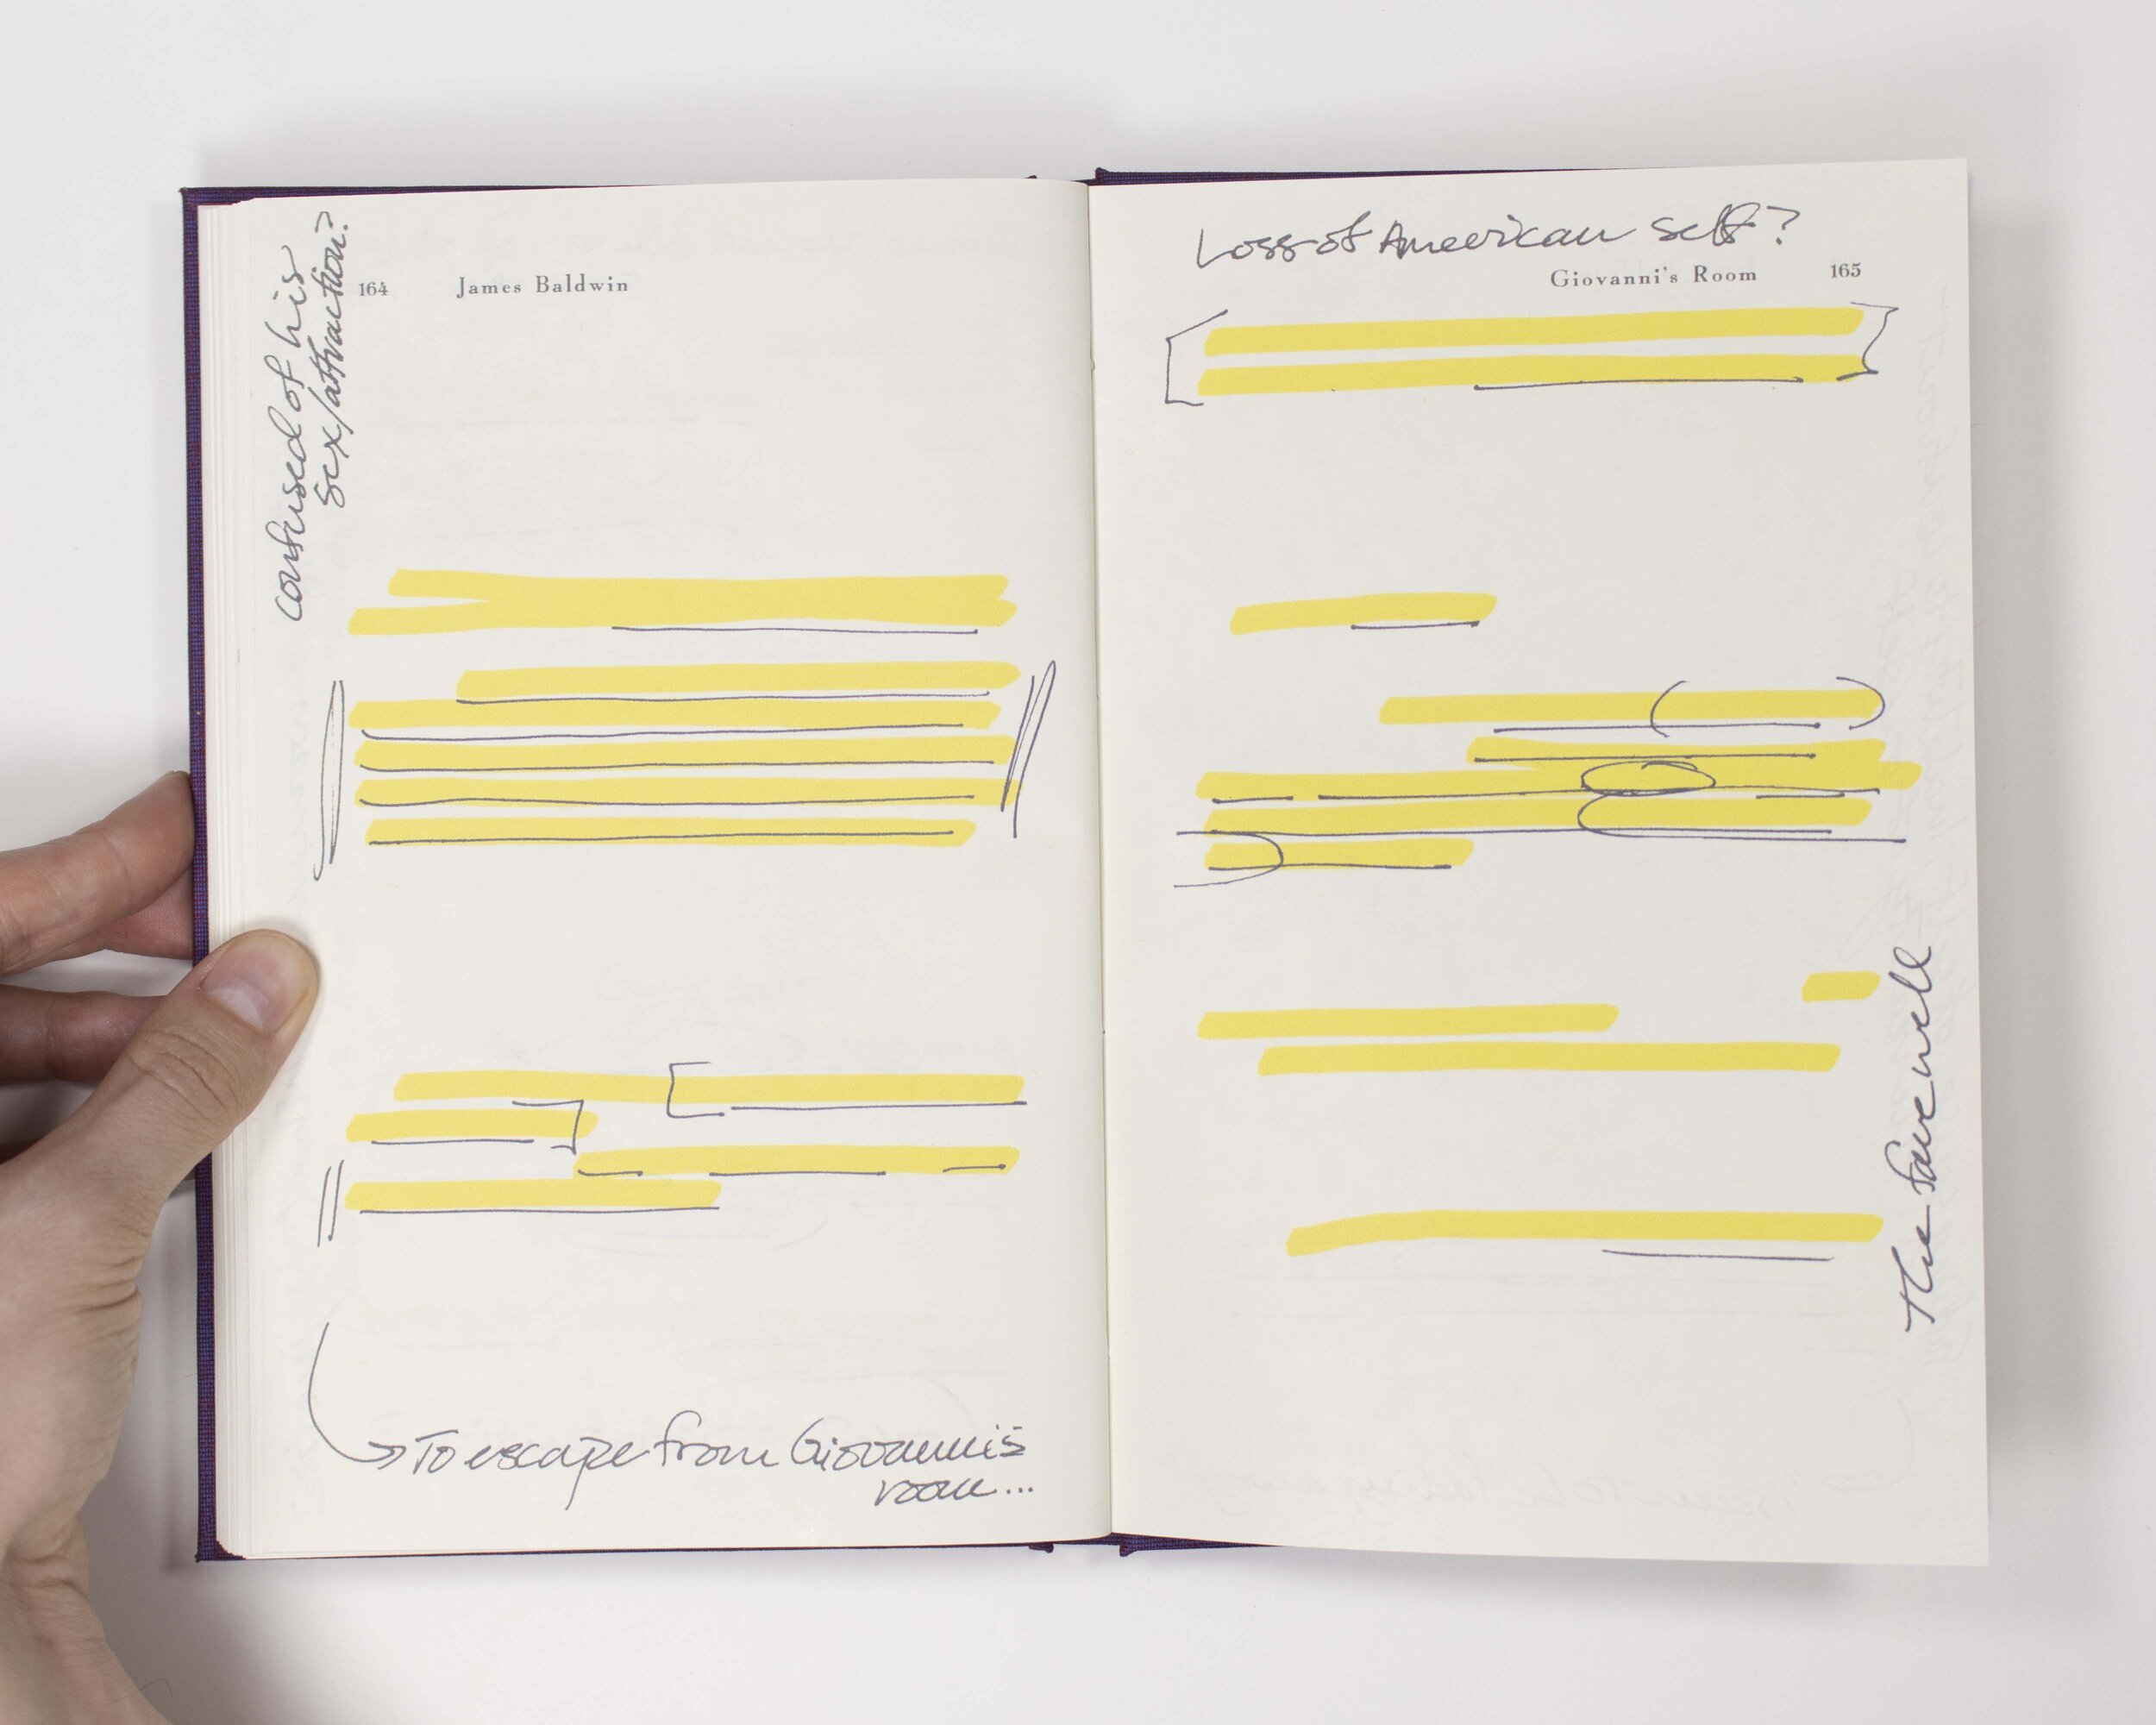 confused of his
sex/attraction?
164 James Baldwin
To escape from Giovanni's
room...
Loss of American self?
Giovanni's Room 165
The farewell